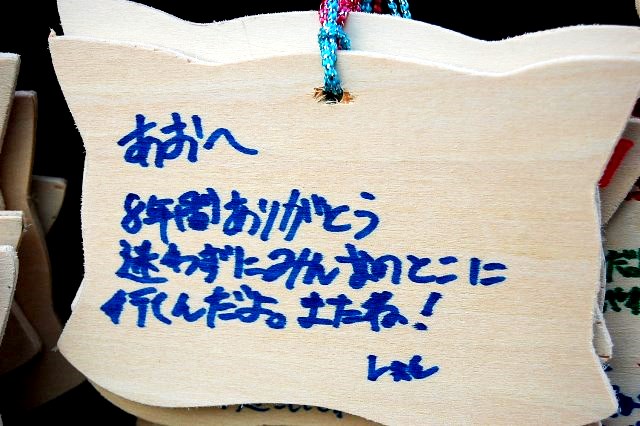 あおへ
8年間ありがとう
迷わずにみんなのとこに
行くんだよ。またね!